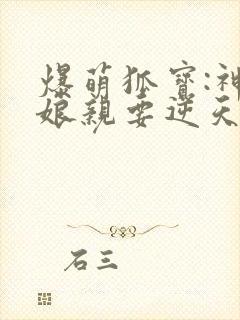 爆萌狐寶:神
娘親要逆天
石三